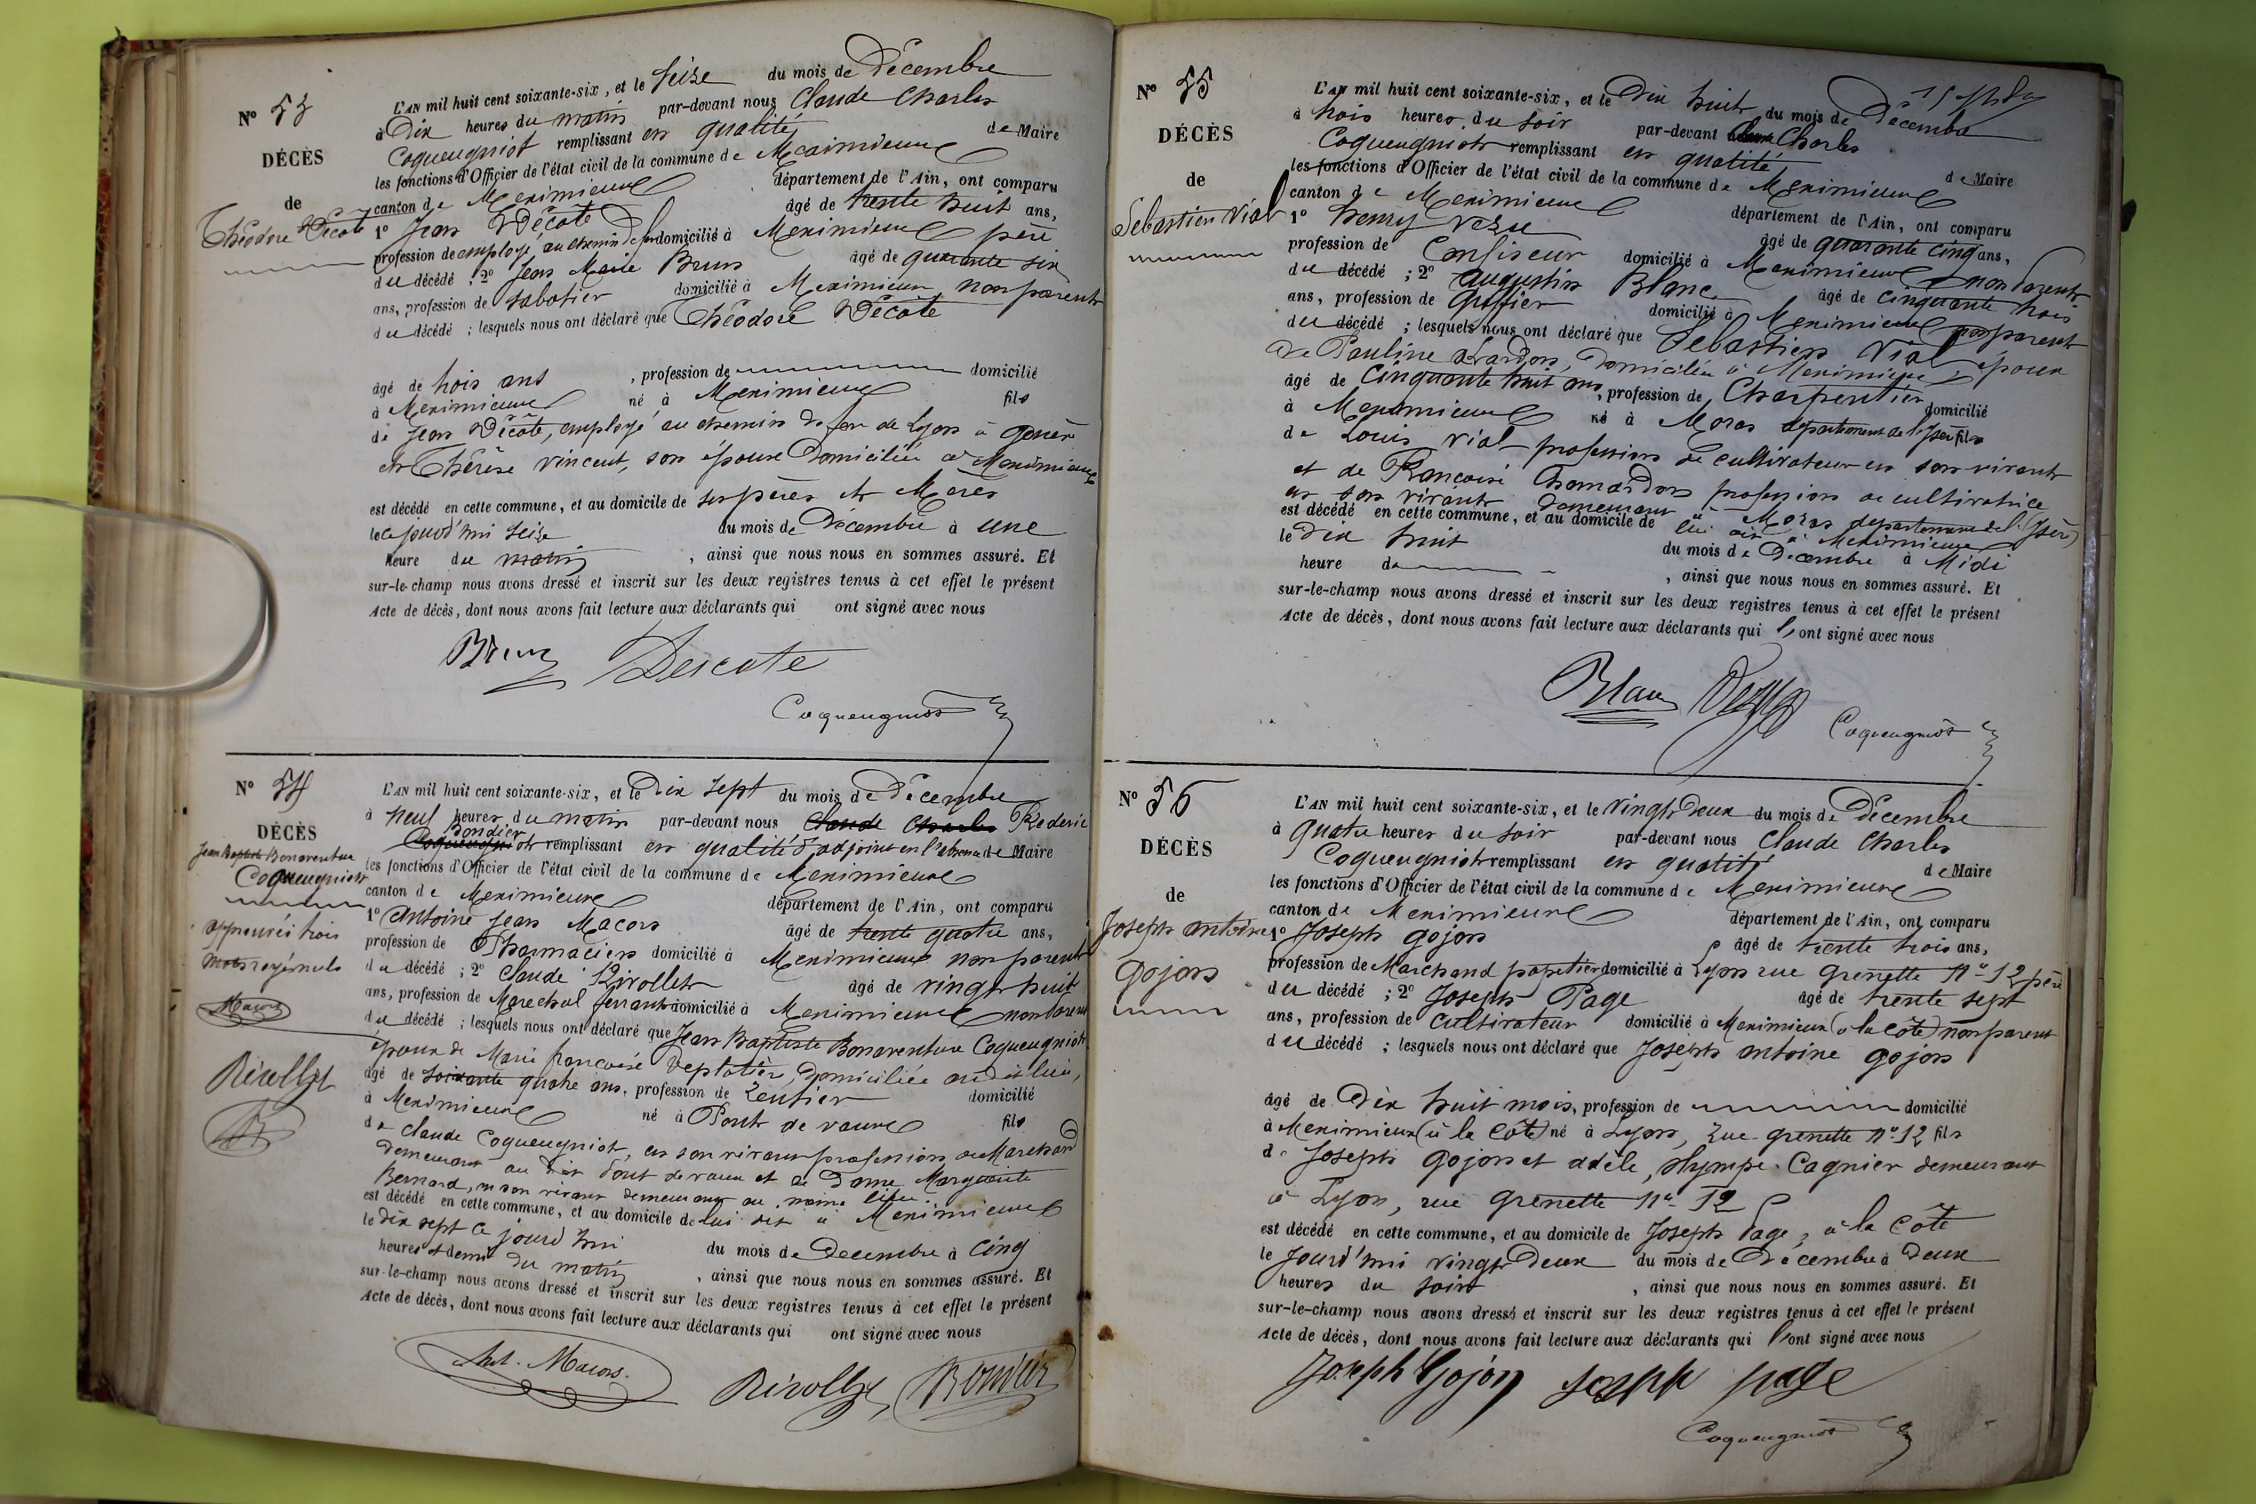 N° 53
DÉCÈS
de
Théodore Décôte
L'AN mil huit cent soixante-six, et le Seize du mois de Décembre
à Dix heures du matin par-devant nous Claude Charles
Coqueugniot remplissant en qualité de Maire
les fonctions d'Officier de l'état civil de la commune de Meximieux
canton de Meximieux département de l'Ain, ont comparu
1° Jean Décôte âgé de trente huit ans,
profession de employé au chemin de fer domicilié à Meximieux père
du décédé ; 2° Jean Marie Brun âgé de quarante six
ans, profession de sabotier domicilié à Meximieux, non parent
du décédé ; lesquels nous ont déclaré que Théodore Décôte
âgé de trois ans, profession de domicilié
à Meximieux né à Meximieux fils
de Jean Décôte, employé au chemin de fer de Lyon à Genève
et Thérèse Vincent, son épouse Domiciliée à Meximieux
est décédé en cette commune, et au domicile de ses pères et Mères
le ce jourd'hui seize du mois de Décembre à une
heure du matin, ainsi que nous nous en sommes assuré. Et
sur-le-champ nous avons dressé et inscrit sur les deux registres tenus à cet effet le présent
Acte de décès, dont nous avons fait lecture aux déclarants qui ont signé avec nous
Brun Descote
Coqueugniot
N° 54
DÉCÈS
Jean Baptiste Bonaventure
Coqueugniot
approuvés trois
mots rayés nuls
Macors
Rivollet
L'AN mil huit cent soixante-six, et le Dix sept du mois de Décembre
à neuf heures du matin par-devant nous Claude Charles Frederic
Bondier
Coqueugniot remplissant en qualité d'adjoint en l'absence de Maire
les fonctions d'Officier de l'état civil de la commune de Meximieux
canton de Meximieux département de l'Ain, ont comparu
1° Antoine Jean Macors âgé de trente quatre ans,
profession de Pharmacien domicilié à Meximieux non parent
du décédé ; 2° Claude Rivollet âgé de vingt huit
ans, profession de Marechal ferrant domicilié à Meximieux non parent
du décédé ; lesquels nous ont déclaré que Jean Baptiste Bonaventure Coqueugniot
époux de Marie françoise Deplatière, Domiciliée audit lieu,
âgé de soixante quatre ans, profession de Rentier domicilié
à Meximieux né à Pont de vaux fils
de Claude Coqueugniot, en son vivant profession de Marchand
Demeurant au dit Pont de vaux et de Dame Marguerite
Bernard, en son vivant demeurant au même lieu
est décédé en cette commune, et au domicile de lui dit à Meximieux
le dix sept ce jourd'hui du mois de Decembre à cinq
heures et demie du matin, ainsi que nous nous en sommes assuré. Et
sur-le-champ nous avons dressé et inscrit sur les deux registres tenus à cet effet le présent
Acte de décès, dont nous avons fait lecture aux déclarants qui ont signé avec nous
Ant. Macors. Rivollet Bondier
N° 55
DÉCÈS
de
Sebastien Vial
L'AN mil huit cent soixante-six, et le Dix huit du mois de Décembre
à trois heures du soir par-devant Charles
Coqueugniot remplissant en qualité de Maire
les fonctions d'Officier de l'état civil de la commune de Meximieux
canton de Meximieux département de l'Ain, ont comparu
1° henry Vezu âgé de quarante cinq ans,
profession de Confiseur domicilié à Meximieux non Parent
du décédé ; 2° Augustin Blanc âgé de cinquante trois
ans, profession de Greffier domicilié à Meximieux non parent
du décédé ; lesquels nous ont déclaré que Sebastien Vial époux
de Pauline Lardon, Domiciliée à Meximieux
âgé de Cinquante huit ans, profession de Charpentier domicilié
à Meximieux né à Moras departement de l'Isère fils
de Louis Vial profession de cultivateur en son vivant
et de Françoise Chomardon profession de cultivatrice
en son vivant Demeurant à Moras departement de l'Isère
est décédé en cette commune, et au domicile de lui dit à Meximieux
le Dix huit du mois de Décembre à Midi
heure de, ainsi que nous nous en sommes assuré. Et
sur-le-champ nous avons dressé et inscrit sur les deux registres tenus à cet effet le présent
Acte de décès, dont nous avons fait lecture aux déclarants qui l'ont signé avec nous
Blanc Vezu
Coqueugniot
N° 56
DÉCÈS
de
Joseph Antoine
Gojon
L'AN mil huit cent soixante-six, et le vingt Deux du mois de Décembre
à quatre heures du soir par-devant nous Claude Charles
Coqueugniot remplissant en qualité de Maire
les fonctions d'Officier de l'état civil de la commune de Meximieux
canton de Meximieux département de l'Ain, ont comparu
1° Joseph Gojon âgé de trente trois ans,
profession de Marchand papetier domicilié à Lyon rue Grenette n° 12 père
du décédé ; 2° Joseph Page âgé de trente sept
ans, profession de Cultivateur domicilié à Meximieux (à la côte) non parent
du décédé ; lesquels nous ont déclaré que Joseph Antoine Gojon
âgé de Dix huit mois, profession de domicilié
à Meximieux (à la côte) né à Lyon, Rue Grenette N° 12 fils
de Joseph Gojon et adèle, olympe Cagnier demeurant
à Lyon, rue Grenette N° 12
est décédé en cette commune, et au domicile de Joseph Page, à la côte
le jourd'hui vingt Deux du mois de Décembre à Deux
heures du soir, ainsi que nous nous en sommes assuré. Et
sur-le-champ nous avons dressé et inscrit sur les deux registres tenus à cet effet le présent
Acte de décès, dont nous avons fait lecture aux déclarants qui l'ont signé avec nous
Joseph Gojon joseph page
Coqueugniot